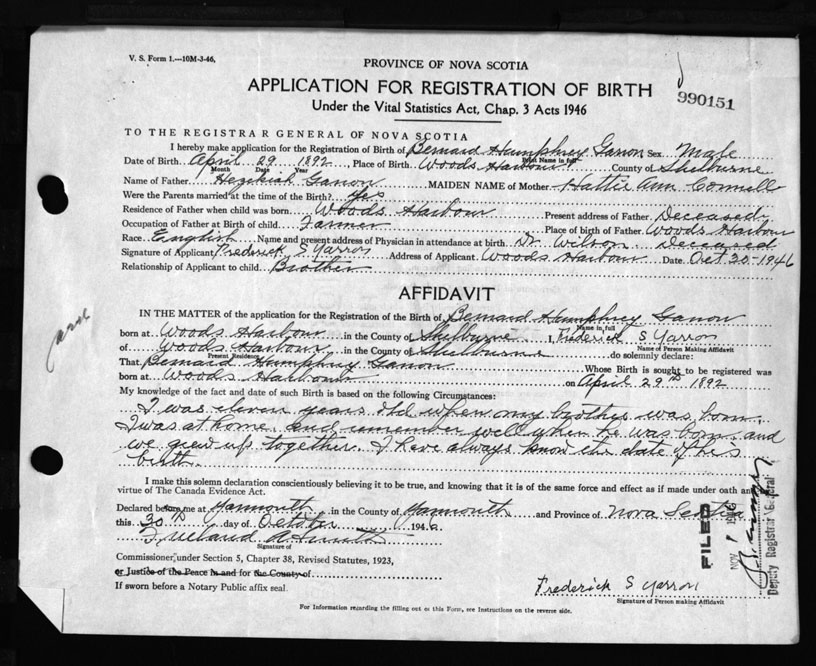 V. S. Form 1.—10M-3-46,
PROVINCE OF NOVA SCOTIA
APPLICATION FOR REGISTRATION OF BIRTH
Under the Vital Statistics Act, Chap. 3 Acts 1946
990151
TO THE REGISTRAR GENERAL OF NOVA SCOTIA
I hereby make application for the Registration of Birth of Bernard Humphrey Garron Sex Male
Print Name in full
Date of Birth April 29 1892, Place of Birth Woods Harbour County of Shelburne
Month Date Year
Name of Father Hezekiah Garron MAIDEN NAME of Mother Hattie Ann
Were the Parents married at the time of the Birth? Yes
Residence of Father when child was born Woods Harbour Present address of Father Deceased
Occupation of Father at Birth of child Farmer Place of birth of Father Woods Harbour
Race English Name and present address of Physician in attendance at birth. Dr. Wilson. Deceased
Signature of Applicant Frederick S Garron Address of Applicant Woods Harbour Date Oct 30-1946
Relationship of Applicant to child. Brother
AFFIDAVIT
IN THE MATTER of the application for the Registration of the Birth of Bernard Humphrey Garron
Name in full
born at Woods Harbour in the County of Shelburne. I Frederick S Garron
Name of Person Making Affidavit
of Woods Harbour in the County of Shelburne do solemnly declare:
Present Residence
That Bernard Humphrey Garron Whose Birth is sought to be registered was
born at Woods Harbour on April 29th 1892
My knowledge of the fact and date of such Birth is based on the following Circumstances:
I was eleven years old when my brother was born.
I was at home and remember well when he was born and
we grew up together. I have always know the date of his
birth.
I make this solemn declaration conscientiously believing it to be true, and knowing that it is of the same force and effect as if made under oath and
virtue of The Canada Evidence Act.
Declared before me at Yarmouth in the County of Yarmouth and Province of Nova Scotia
this 30th day of October 1946
Signature of
Commissioner, under Section 5, Chapter 38, Revised Statutes, 1923,
or Justice of the Peace in and for the County of
If sworn before a Notary Public affix seal.
Frederick S Garron
Signature of Person making Affidavit
For Information regarding the filling out of this Form, see Instructions on the reverse side.
FILED
NOV 1946
Deputy Registrar General